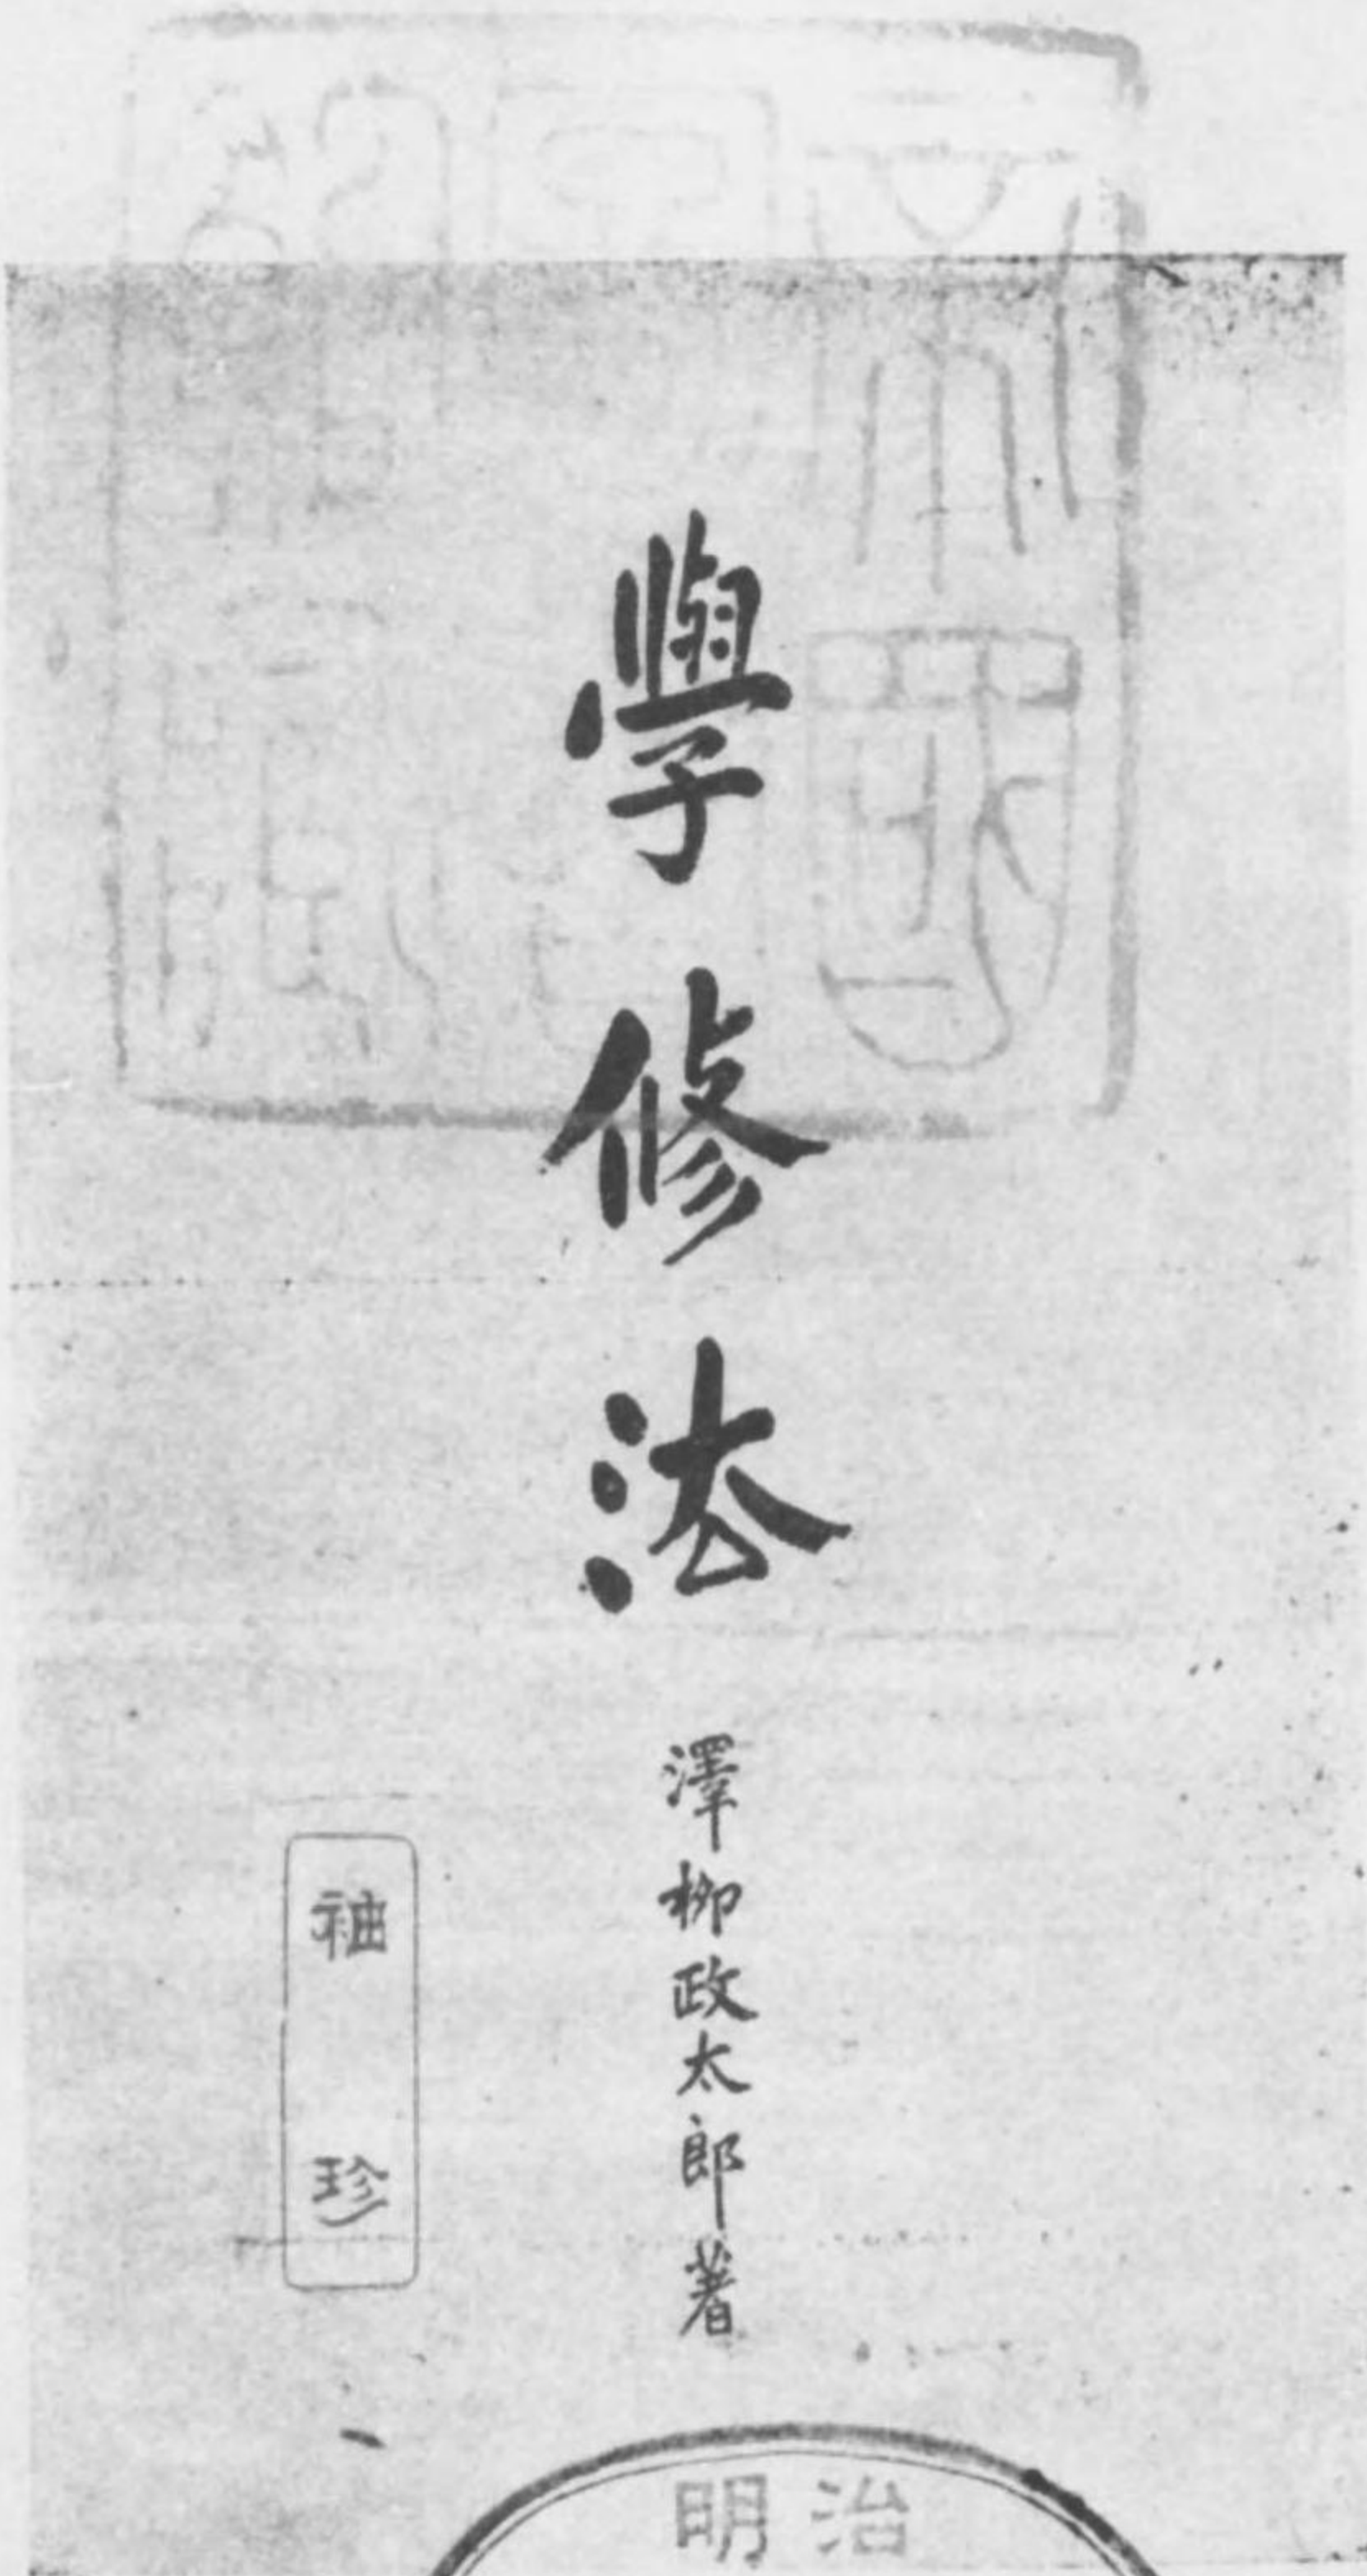 學修法
澤柳政太郎著
袖珍
明治